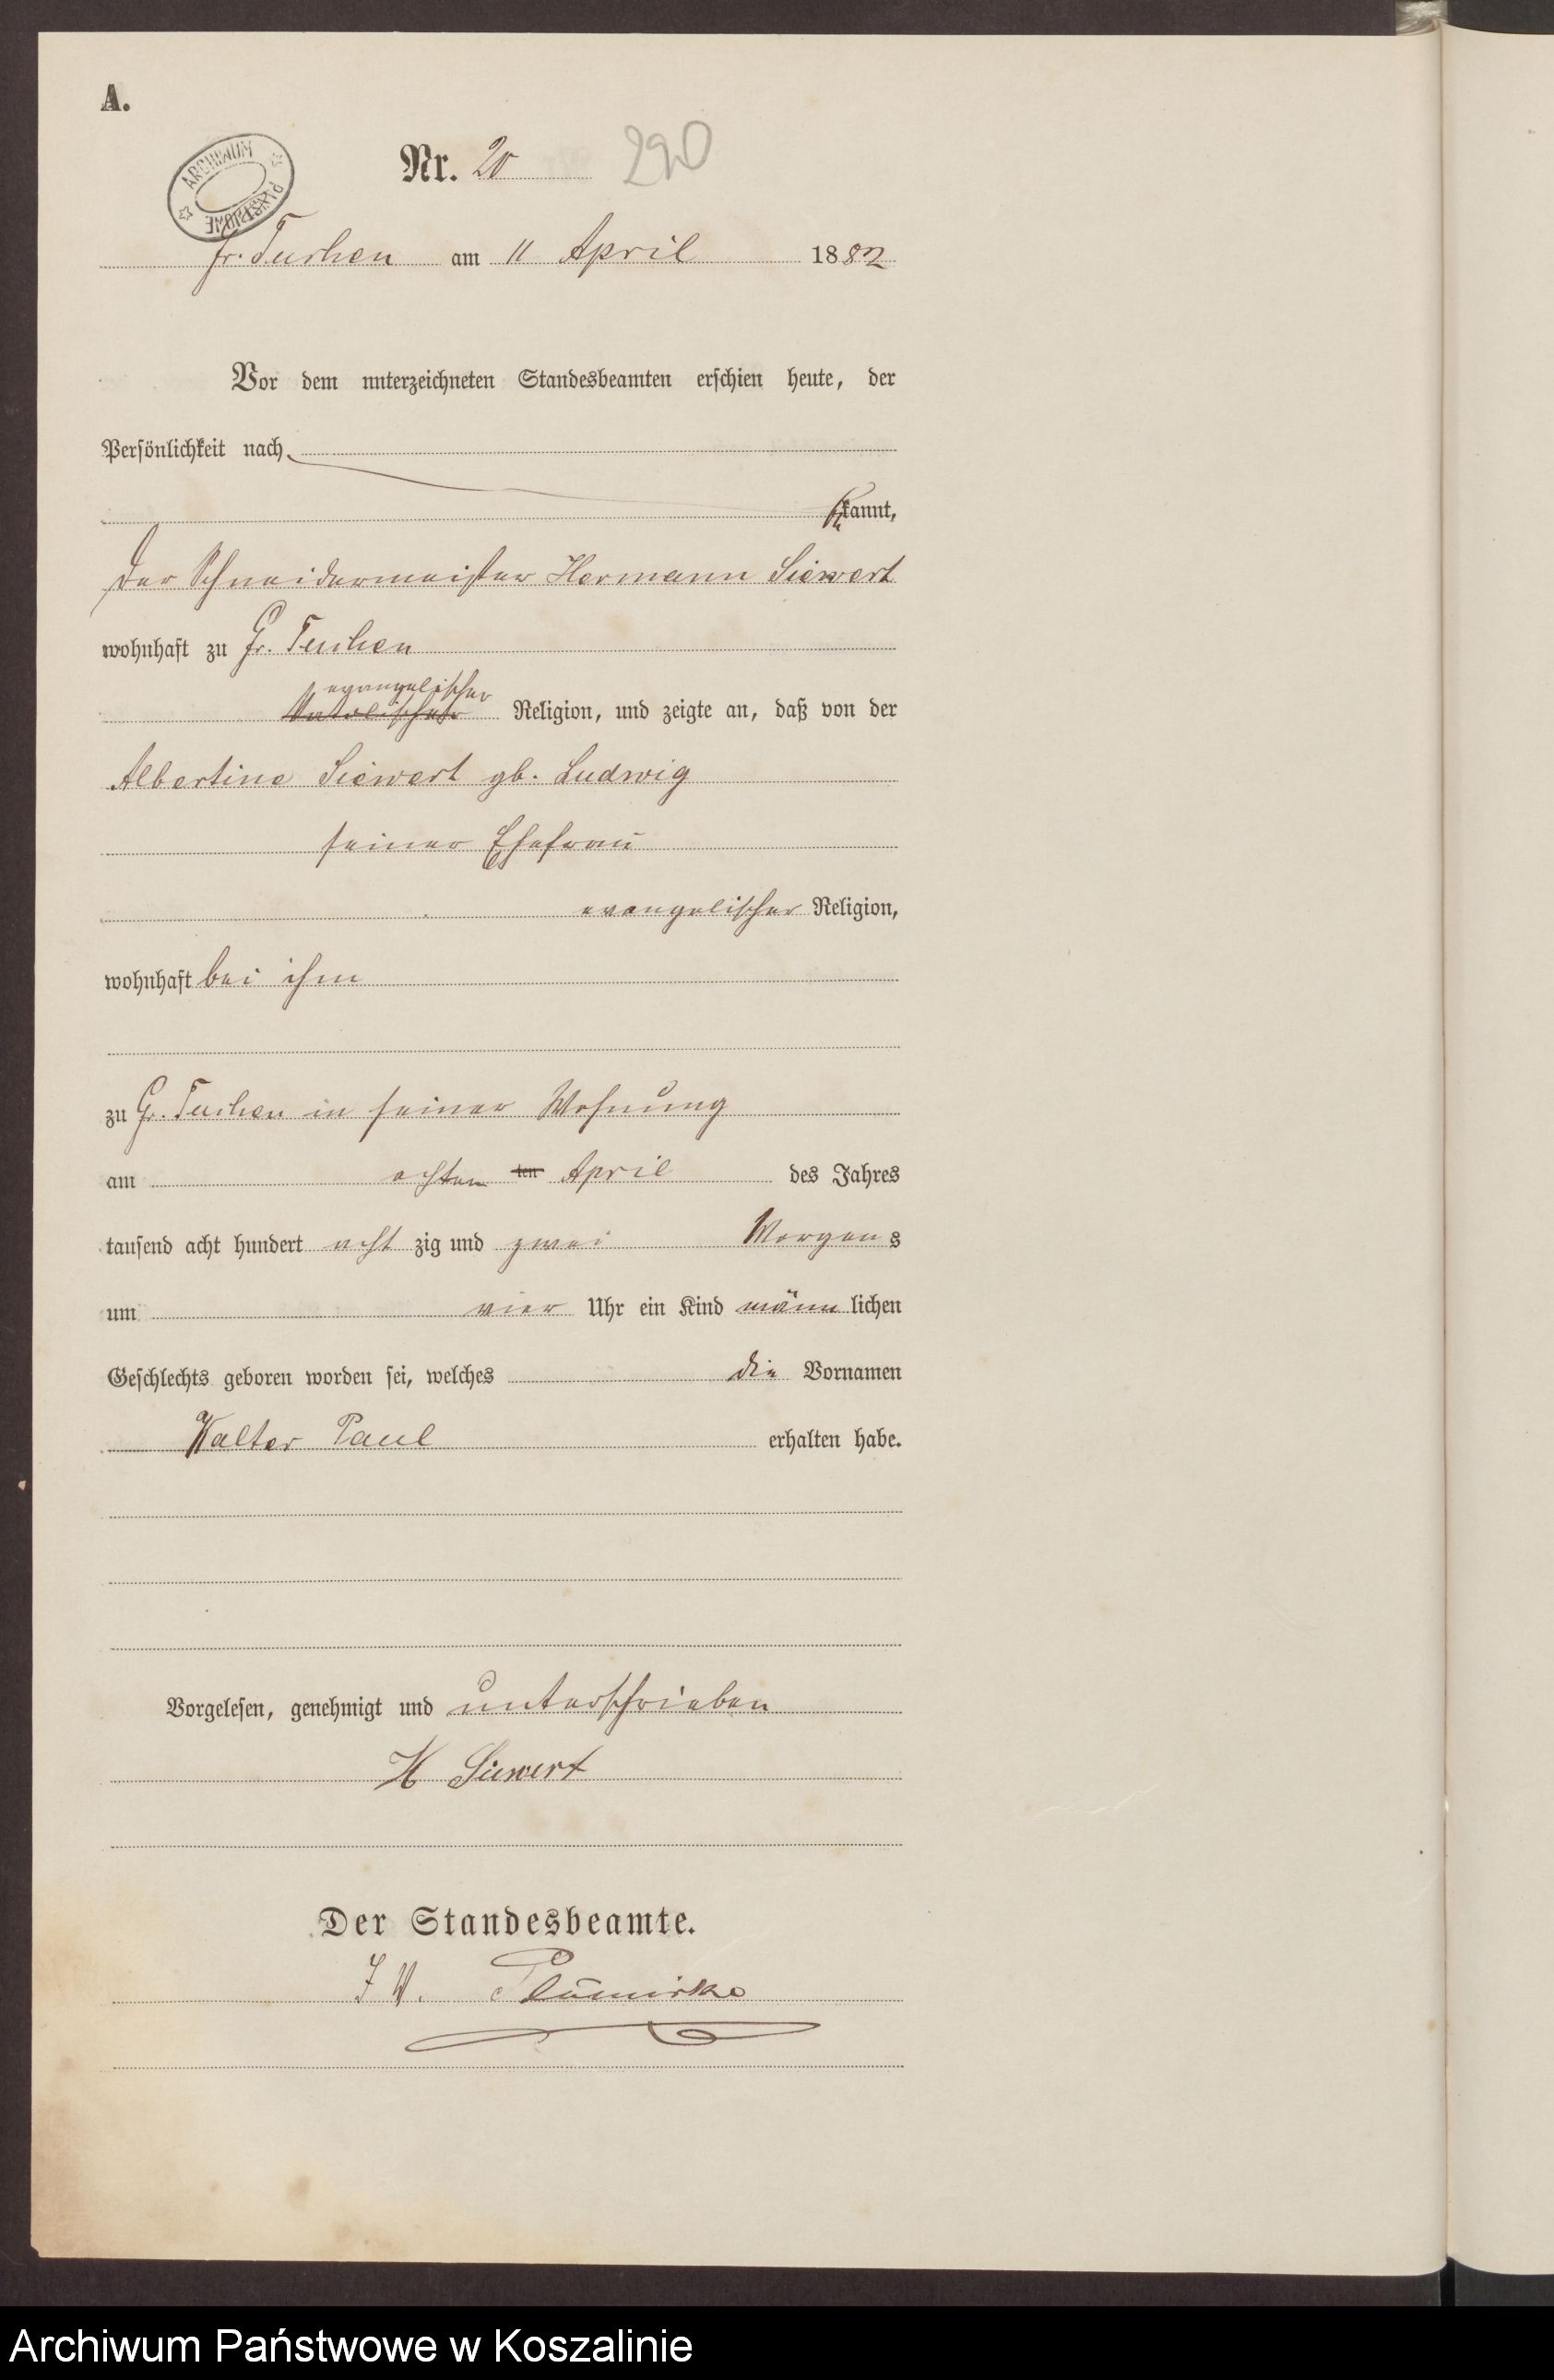 A.
ARCHIWUM PAŃSTWOWE
Nr. 20 290
Gr. Tuchen am 11 April 1882
Vor dem unterzeichneten Standesbeamten erschien heute, der
Persönlichkeit nach
bekannt,
der Schneidermeister Hermann Siewert
wohnhaft zu Gr. Tuchen
evangelischer
katolischer Religion, und zeigte an, daß von der
Albertine Siewert gb. Ludwig
seiner Ehefrau
evangelischer Religion,
wohnhaft bei ihm
zu Gr. Tuchen in seiner Wohnung
am achten ten April des Jahres
tausend acht hundert acht zig und zwei Morgens
um vier Uhr ein Kind männlichen
Geschlechts geboren worden sei, welches die Vornamen
Walter Paul erhalten habe.
Vorgelesen, genehmigt und unterschrieben
H Siewert
Der Standesbeamte.
J V.
Archiwum Państwowe w Koszalinie